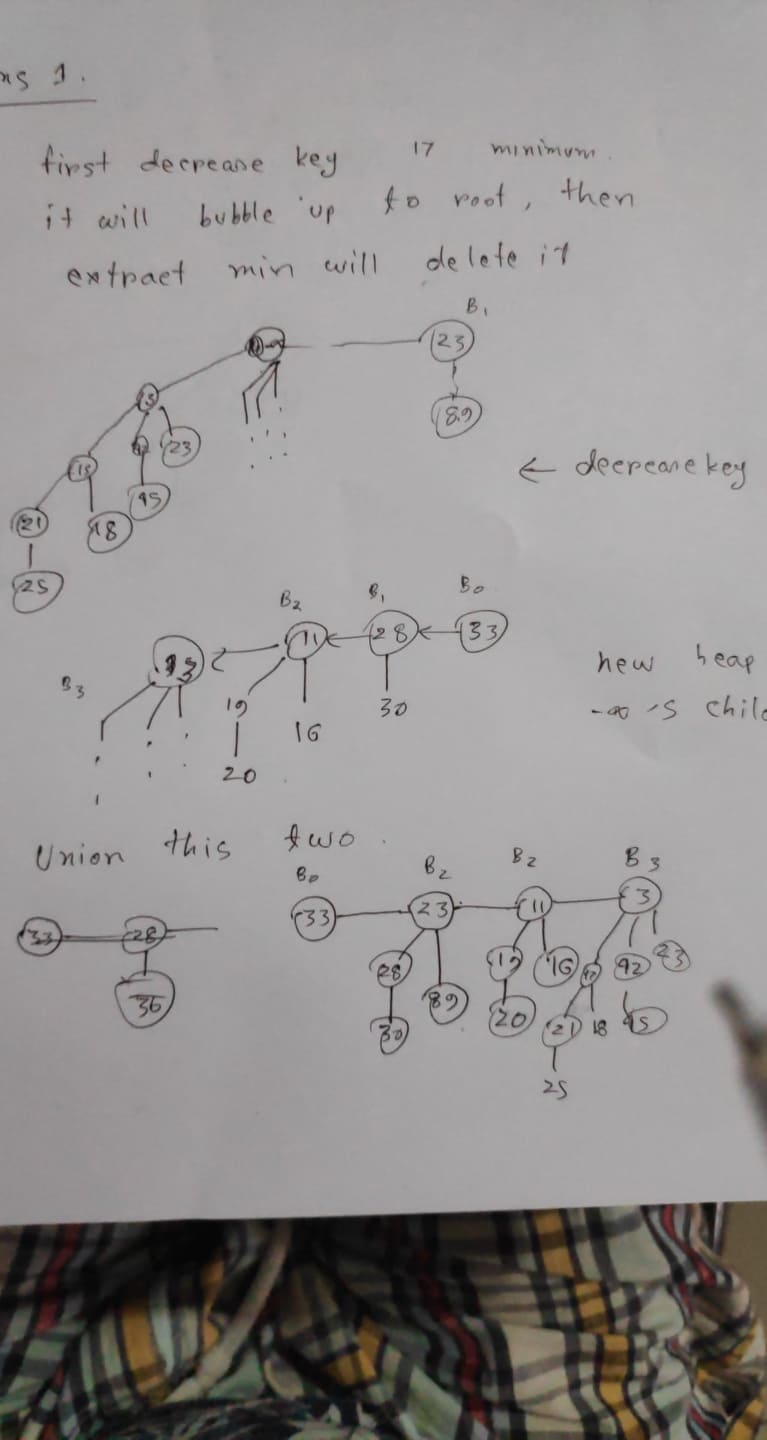 ns 1.
first decrease key 17 minimum.
it will bubble up to root, then
extract min will delete it
B1
23
89
23
15
21
18
95
25
← decrease key
B2 B1 B0
11 28 33
B3
19 16 30
20
new heap
-∞'s chil
Union this two.
B0 B2 B2 B3
33 28 33 23 11 3
28 89 19 16 92 23
36 30 20 21 18 95
25